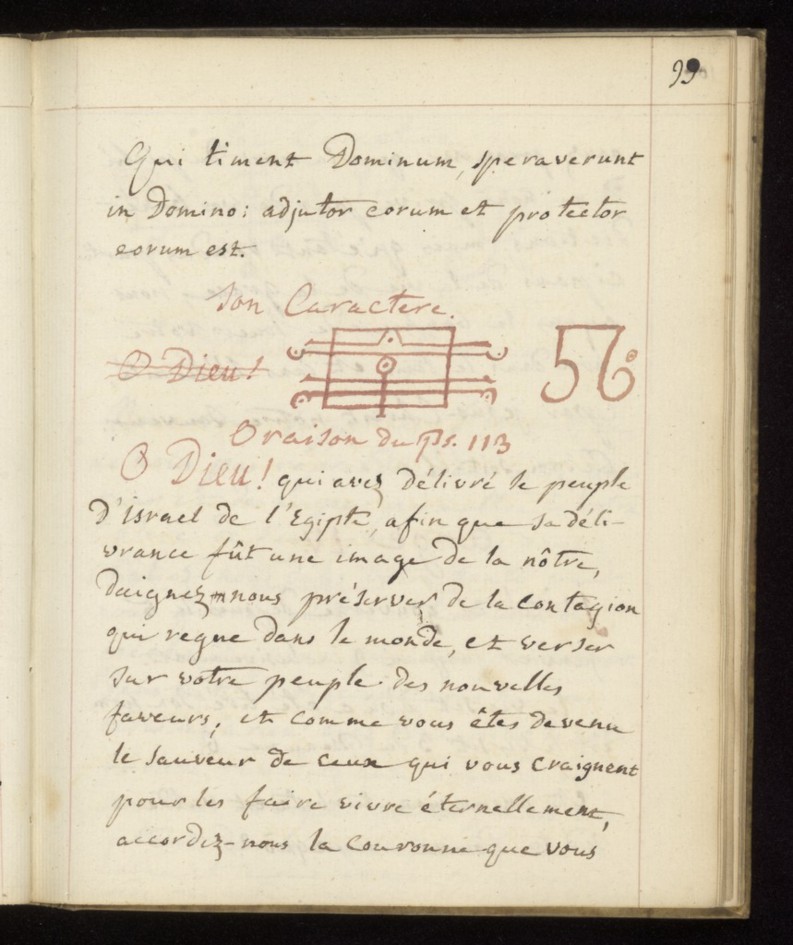 99
Qui timent Dominum, speraverunt
in Domino: adjutor eorum et protector
eorum est.
Son Caractere.
O Dieu!
Oraison du Ps. 113
O Dieu! qui avez délivré le peuple
d'israel de l'Egipte, afin que sa déli-
vrance fût une image de la nôtre,
daignez nous préserver de la contagion
qui regne dans le monde, et verser
sur votre peuple des nouvelles
faveurs; et comme vous êtes devenu
le sauveur de ceux qui vous craignent
pour les faire vivre éternellement,
accordez-nous la couronne que vous